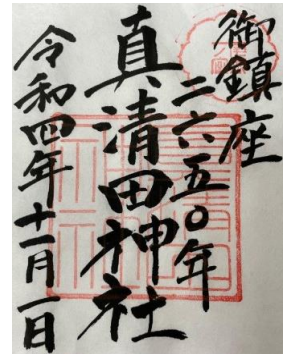 御鎮座
二六五〇年
真清田神社
令和四年十一月一日